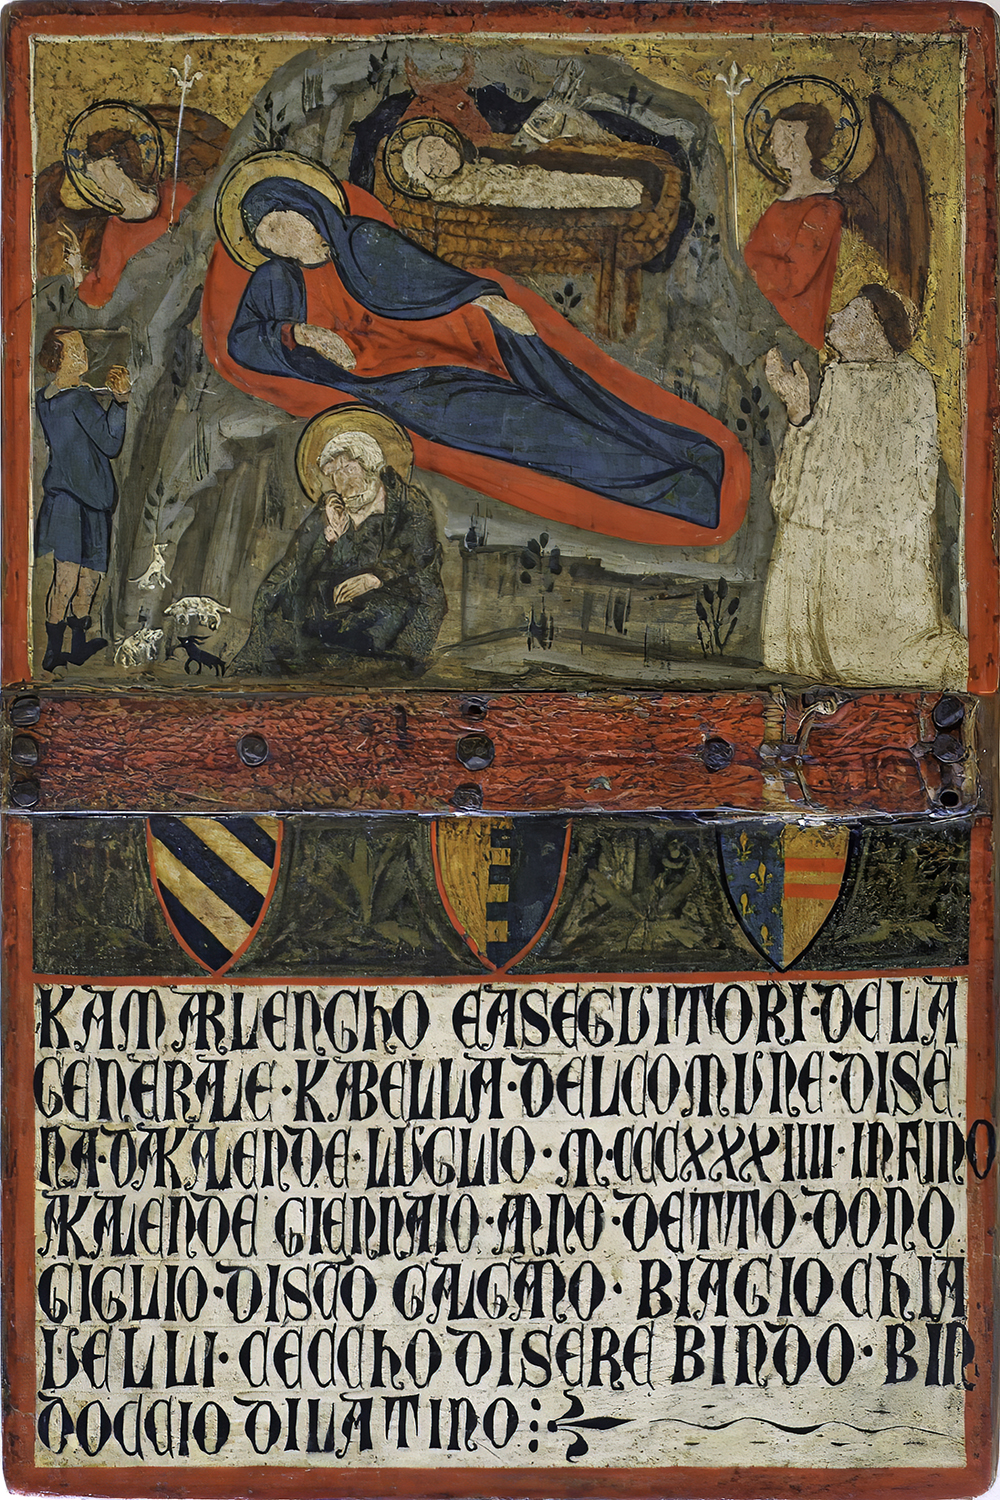 KAMARLENGhO EASEGUITORI·DELA
GENERALE·KABELLA·DELCOMUNE·DISE
NA·DAKALENDE·LUGLIO·M·CCCXXXIIII·INFINO
AKALENDE GIENNAIO·ANNO·DETTO·DONO
GIGLIO·DISCO GALGANO·BIAGIO ChIA
VELLI·CECChO DISERE BINDO·BIN
DOCCIO DILATINO